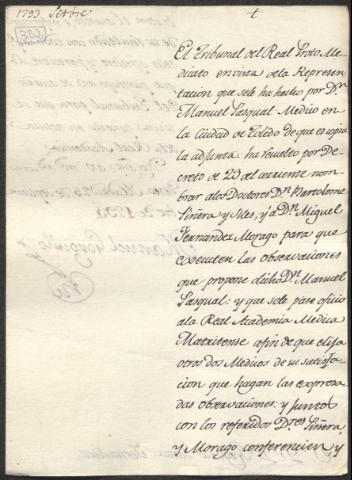 1793. Setbre
t
El Tribunal del Real Proto Me-
dicato en vista de la Represen-
tacion que se le ha hecho por Dn.
Manuel Pasqual Medico en
la Ciudad de Toledo de que es copia
la adjunta, ha resuelto por De-
creto de 23 del corriente nom-
brar a los Doctores Dn. Bartolome
Piñera y Siles, y a Dn. Miguel
Fernandez Morago para que
executen las observaciones
que propone dicho Dn. Manuel
Pasqual: y que se le pase oficio
a la Real Academia Medica
Matritense afin de que elija
otros dos Medicos de su satisfa-
cion que hagan las expresa-
das observaciones: y juntos
con los referidos Dres. Piñera,
y Morago conferencien, y